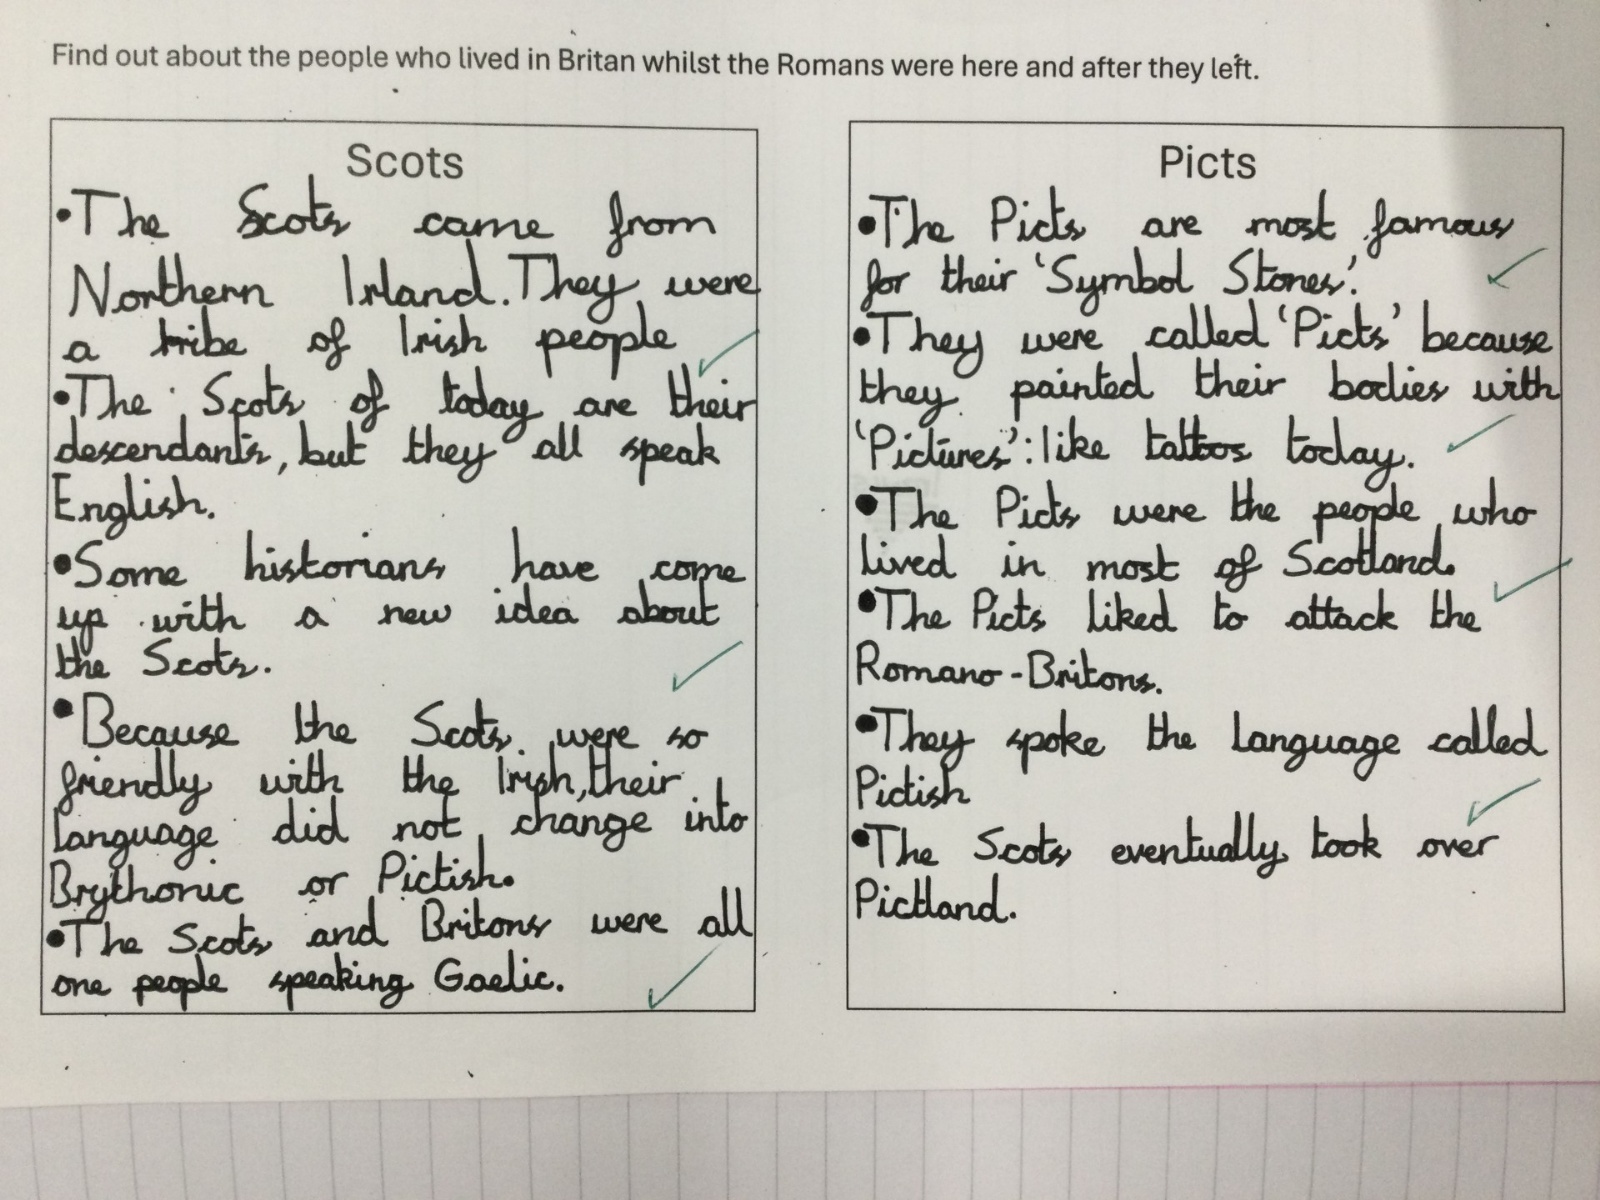 Find out about the people who lived in Britan whilst the Romans were here and after they left.
Scots
•The Scots came from
Northern Irland. They were
a tribe of Irish people
•The Scots of today are their
descendants, but they all speak
English.
•Some historians have come
up with a new idea about
the Scots.
•Because the Scots were so
friendly with the Irish, their
language did not change into
Brythonic or Pictish.
•The Scots and Britons were all
one people speaking Gaelic.
Picts
•The Picts are most famous
for their 'Symbol Stones'.
•They were called 'Picts' because
they painted their bodies with
'Pictures': like tattoos today.
•The Picts were the people who
lived in most of Scotland.
•The Picts liked to attack the
Romano-Britons.
•They spoke the language called
Pictish
•The Scots eventually took over
Pictland.